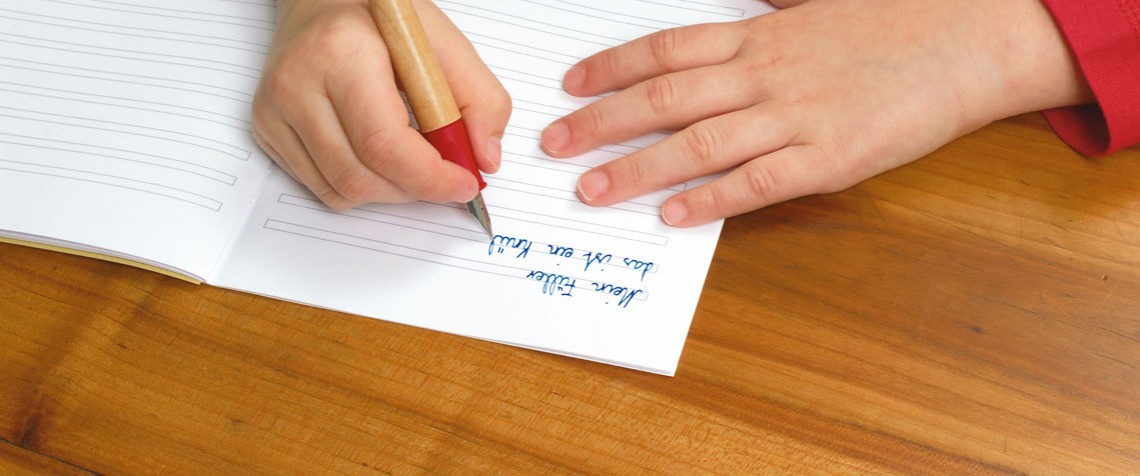 Mein Füller
das ist ein Knül